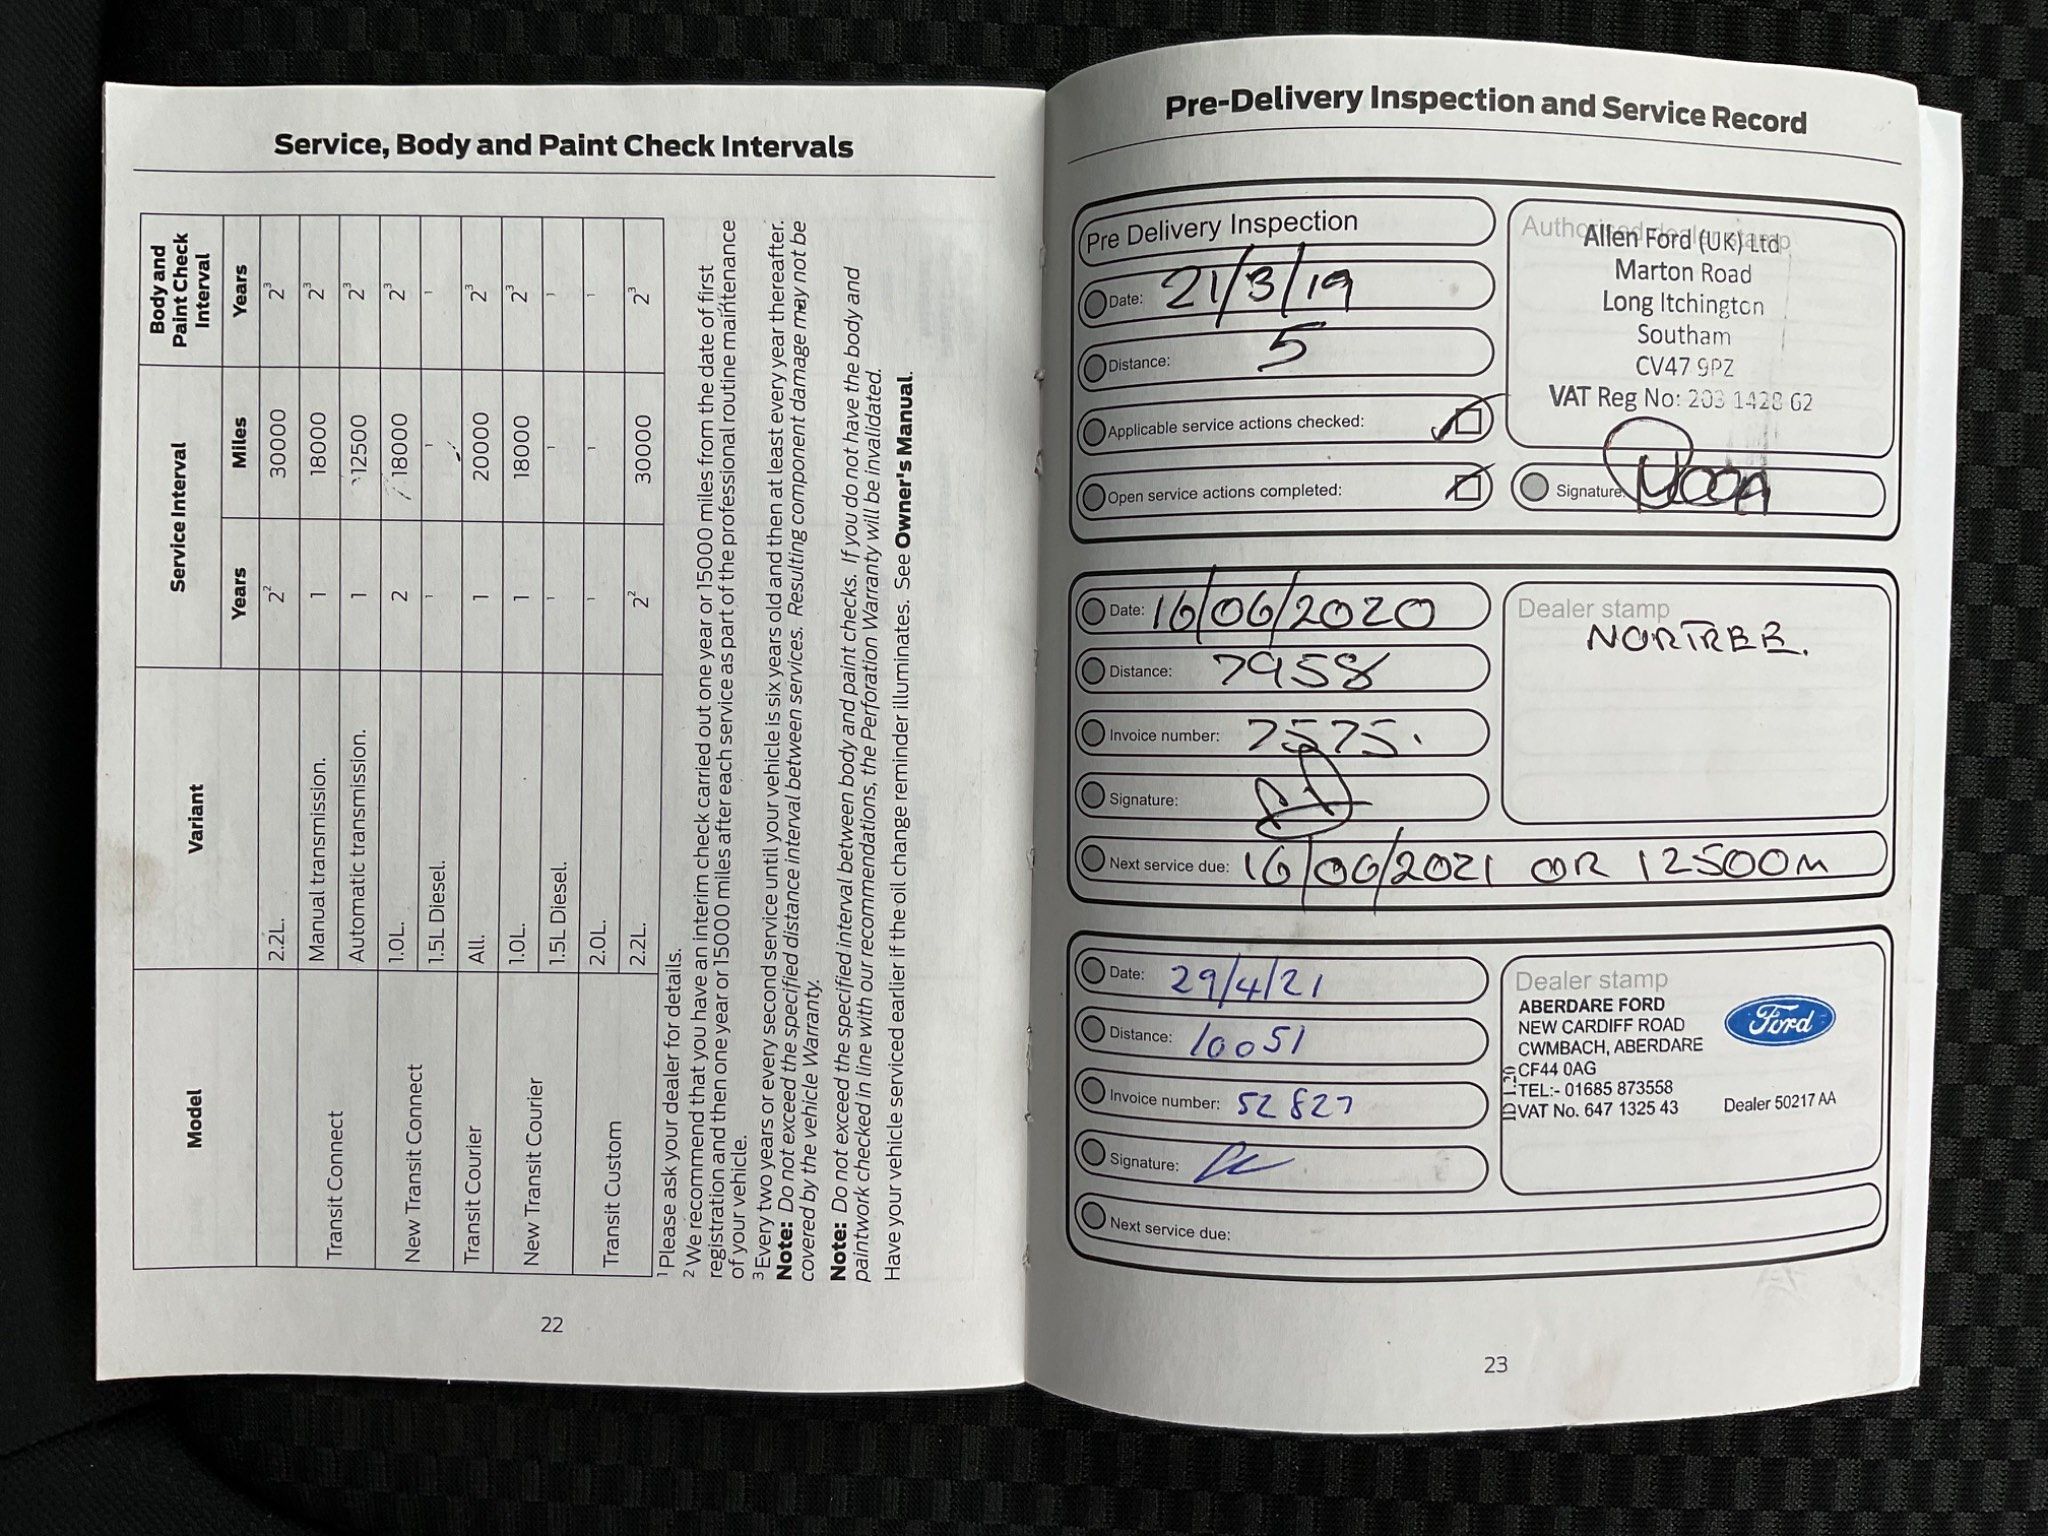 Service, Body and Paint Check Intervals
Model Variant Service Interval Body and Paint Check Interval
Years Miles Years
2.2L. 2² 30000 2³
Transit Connect Manual transmission. 1 18000 2³
Automatic transmission. 1 12500 2³
New Transit Connect 1.0L. 2 18000 2³
1.5L Diesel. 1 1 1
Transit Courier All. 1 20000 2³
New Transit Courier 1.0L. 1 18000 2³
1.5L Diesel. 1 1 1
Transit Custom 2.0L. 1 1 1
2.2L. 2² 30000 2³
¹ Please ask your dealer for details.
² We recommend that you have an interim check carried out one year or 15000 miles from the date of first
registration and then one year or 15000 miles after each service as part of the professional routine maintenance
of your vehicle.
³ Every two years or every second service until your vehicle is six years old and then at least every year thereafter.
Note: Do not exceed the specified distance interval between services. Resulting component damage may not be
covered by the vehicle Warranty.
Note: Do not exceed the specified interval between body and paint checks. If you do not have the body and
paintwork checked in line with our recommendations, the Perforation Warranty will be invalidated.
Have your vehicle serviced earlier if the oil change reminder illuminates. See Owner's Manual.
22
Pre-Delivery Inspection and Service Record
Pre Delivery Inspection
Date: 21/3/19
Distance: 5
Applicable service actions checked:
Open service actions completed:
Authorised dealer stamp
Allen Ford (UK) Ltd
Marton Road
Long Itchington
Southam
CV47 9PZ
VAT Reg No: 203 1428 62
Signature:
Date: 16/06/2020
Distance: 7958
Invoice number: 7575.
Signature:
Dealer stamp
NORTREE.
Next service due: 16/06/2021 OR 12500M
Date: 29/4/21
Distance: 10051
Invoice number: 52827
Signature:
Dealer stamp
ABERDARE FORD
NEW CARDIFF ROAD
CWMBACH, ABERDARE
CF44 0AG
TEL:- 01685 873558
VAT No. 647 1325 43
Ford
Dealer 50217 AA
Next service due:
23